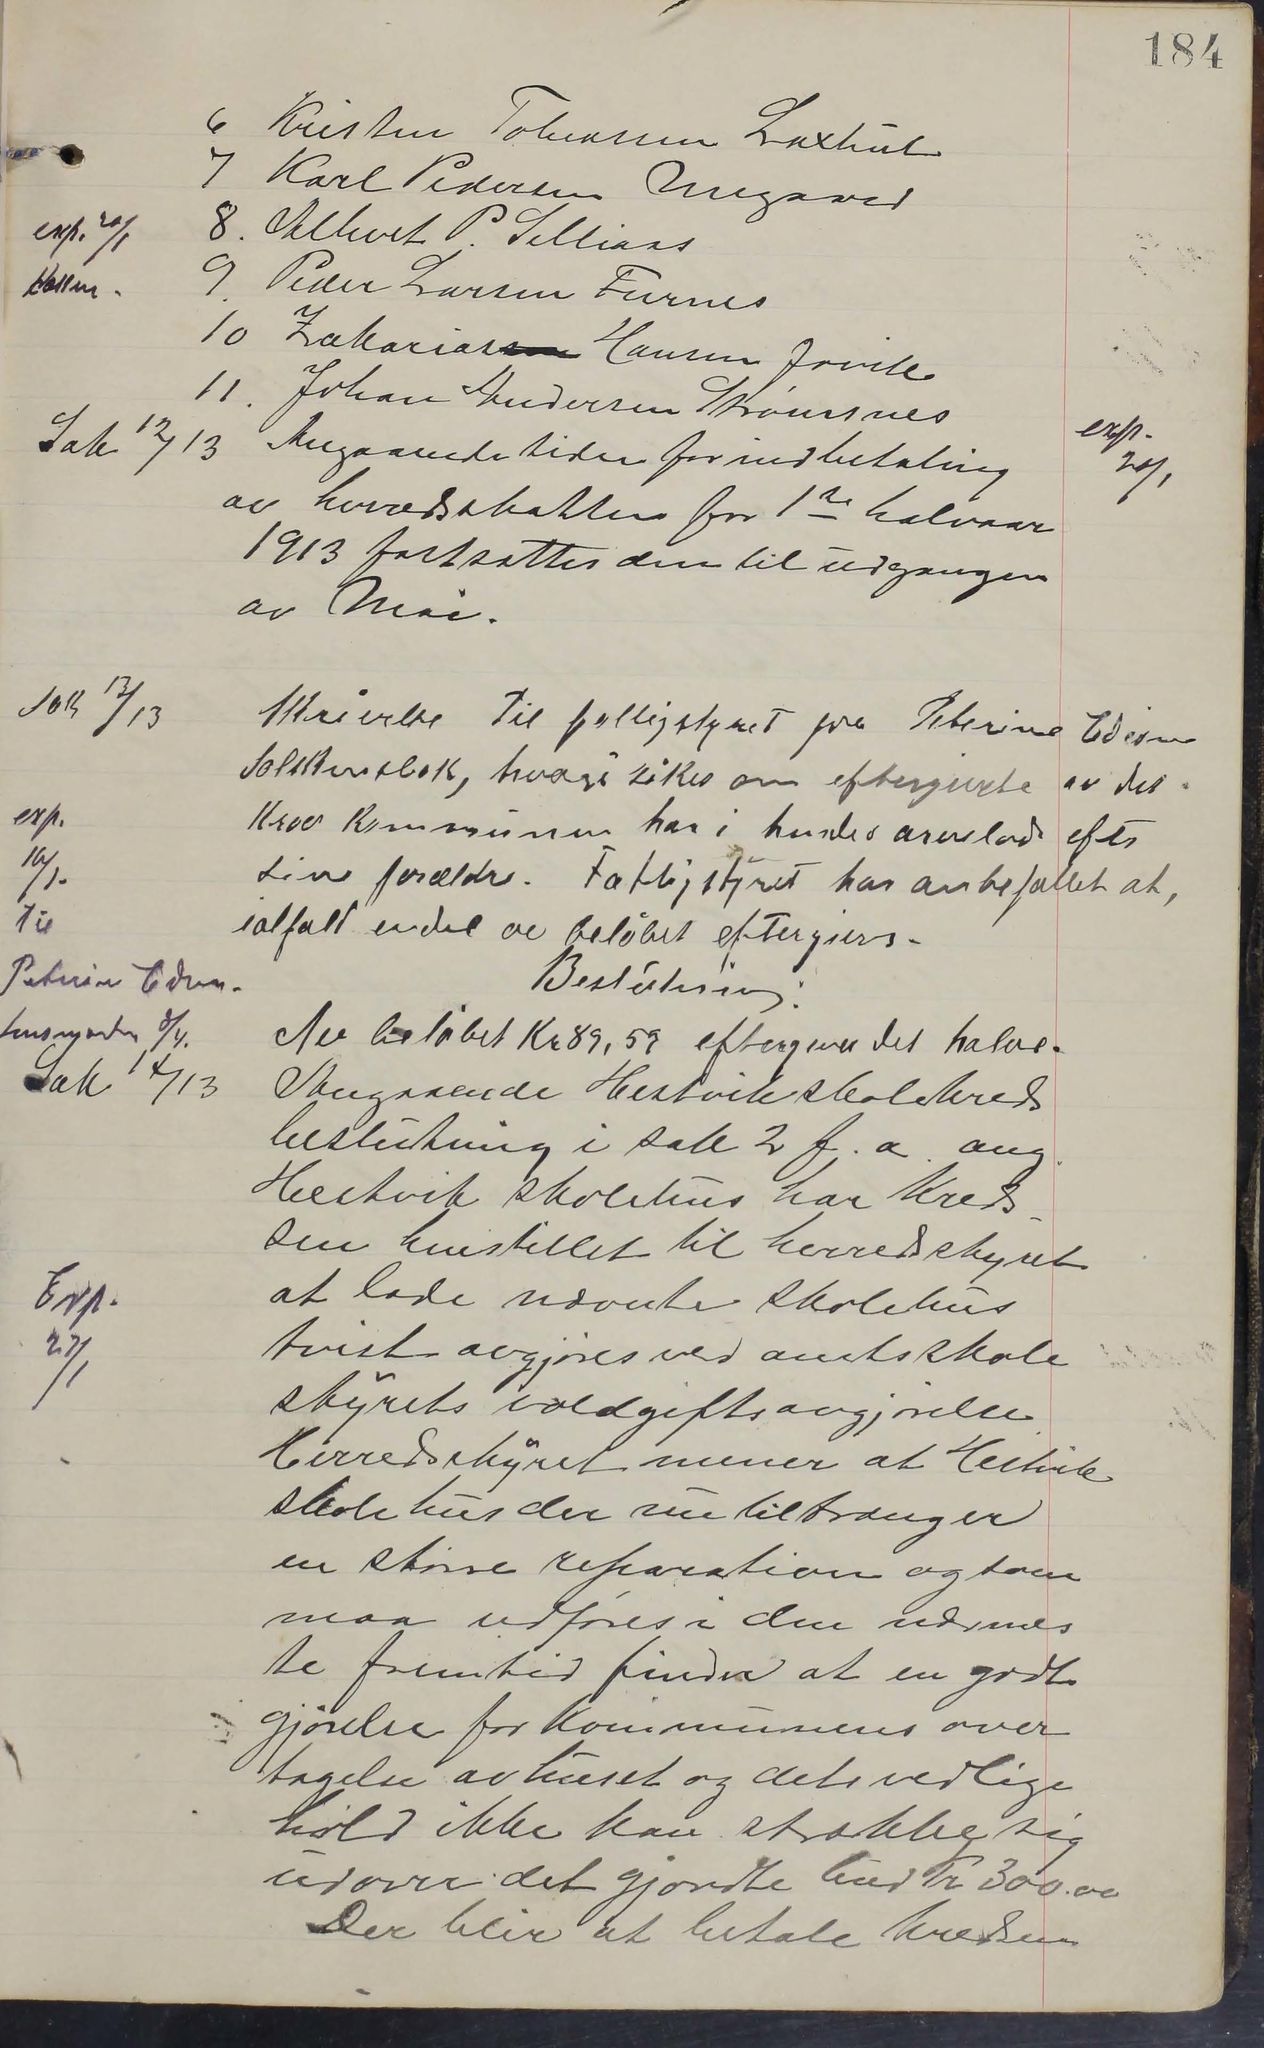 184
6 Kristen Tobiassen Laxhiit
7 Karl Pedersen Megaard
exp. 20/1
8. Alhert P. Selliaas
9. Peder Larsen Furnes
10 Zakarias Hansen Jøvik
11. Johan Andersen Strømsnes
Sak 12/13 Angaaende tiden for indbetaling
exp. 20/1
av herredsskatten for 1ste halvaar
1913 fortsattes den til udgangen
av Mai.
Sak 13/13 Skrivelse til fattigstyret fra Peterine Edisen
, hvori søkes om eftergivelse av det
exp. 16/1. krav kommunen har i hendes arvelod efter
sine forældre. Fattigstyret har anbefallet at,
Til
ialfald endel av beløbet eftergives.
Peterine Edisen.
Beslutning:
8/4.
Av beløbet Kr 89,59 eftergives det halve.
Sak 14/13 Angaaende Hestvik skolekreds
beslutning i sak 2 f. a. ang.
Hestvik skolehus har kred-
sen henstillet til herredsstyret
Exp. 27/1
at lade nævnte skolehus
tvist avgjøres ved amtsskole
styrets voldgiftsavgjørelse
Herredsstyret mener at Hestvik
skolehus der nu tiltrænger
en større reparation og som
maa udføres i den nærmes
te fremtid finder at en godt
gjørelse for kommunens over
tagelse av huset og dets vedlige
hold ikke kan strække sig
udover det gjordte bud Kr 300.00
Der blir at betale kredsen